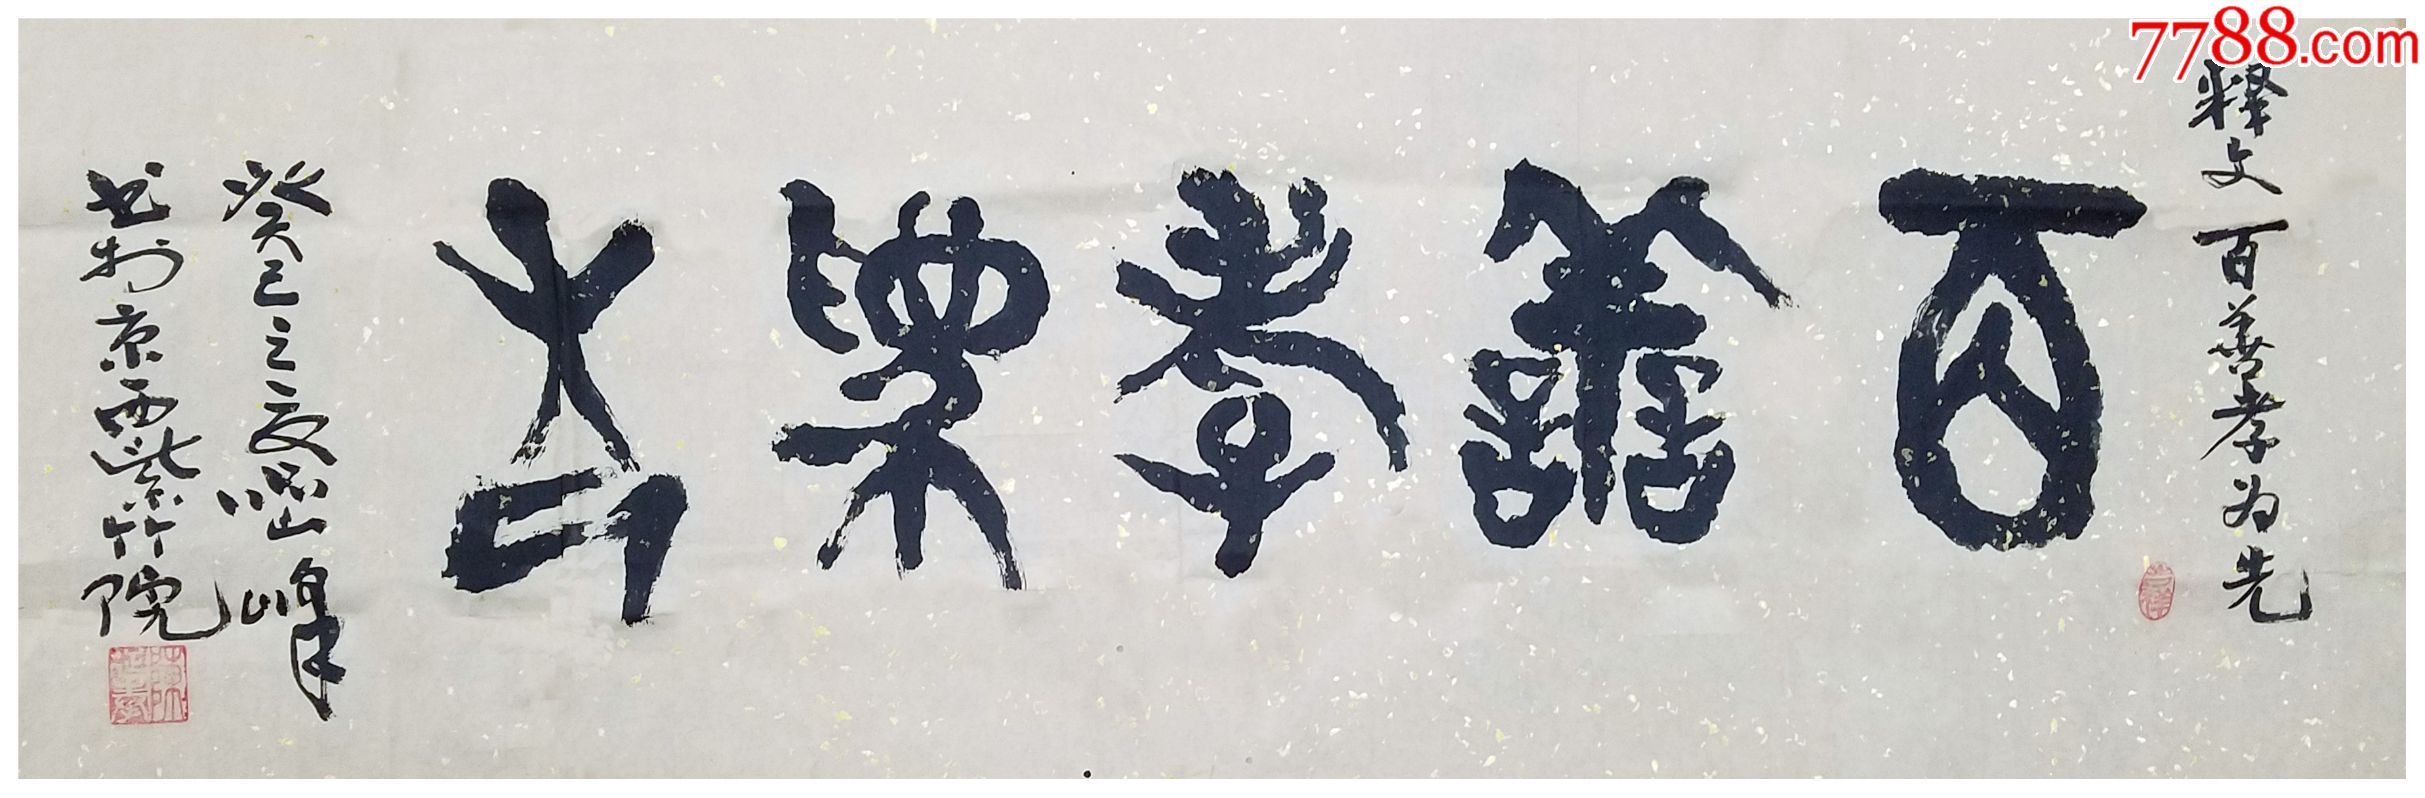 7788.com
释文 百善孝为先
百善孝为先
癸巳之夏
峰
书于京西紫竹院